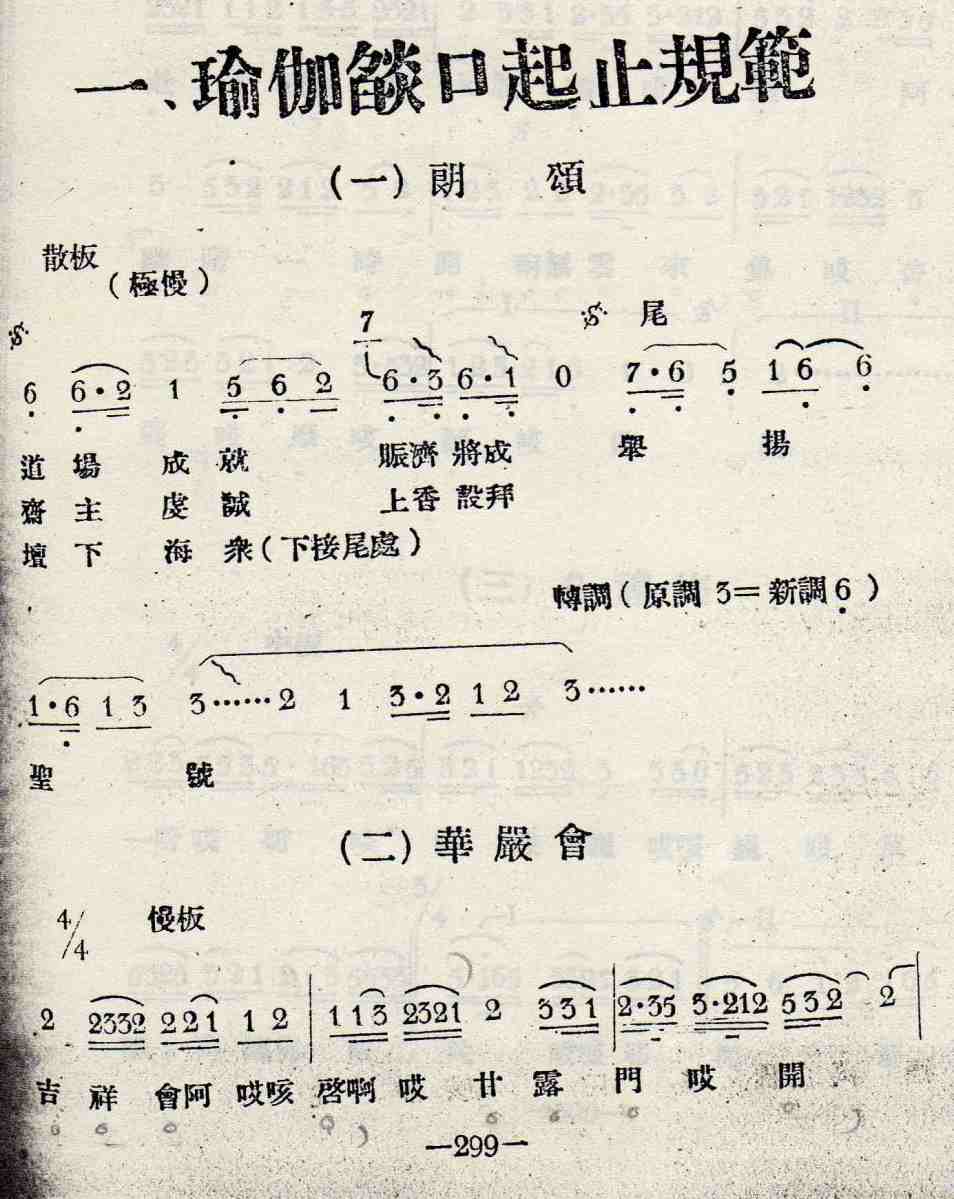 一、瑜伽燄口起止規範
(一)朗 頌
散板
(極慢)
7
尾
6 6·2 1 5 6 2 6·3 6·1 0 7·6 5 1 6 6
道 場 成 就 賑濟 將成 舉 揚
齋 主 虔 誠 上香 設拜
壇 下 海 衆(下接尾處)
轉調(原調 3=新調6)
1·6 1 3 3……2 1 3·2 1 2 3……
聖 號
(二)華 嚴 會
4/4 慢板
2 2332 221 1 2 | 113 2321 2 331 | 2·35 3·212 532 2 |
吉 祥 會阿 哎咳 啓啊 哎 甘 露 門 哎 開
—299—